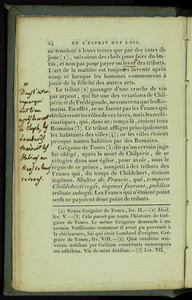 24 DE L'ESPRIT DES LOIS.
ne tenoient à leurs terres que par des cases de
jonc (1), suivoient des chefs pour faire du bu-
tin, et non pas pour payer ou lever des tributs.
L'art de la maltôte est toujours inventé après
coup et lorsque les hommes commencent à
jouir de la félicité des autres arts.
Le tribut (2) passager d'une cruche de vin
par arpent, qui fut une des vexations de Chil-
péric et de Frédégonde, ne concerna que les Ro-
mains. En effet, ce ne furent pas les Francs qui
déchirèrent les rôles de ces taxes, mais les ecclé-
siastiques, qui, dans ces temps-là, étoient tous
Romains (3). Ce tribut affligea principalement
les habitants des villes (4); or les villes étoient
presque toutes habitées par des Romains.
Grégoire de Tours (5) dit qu'un certain juge
fut obligé, après la mort de Chilpéric, de se
réfugier dans une église, pour avoir, sous le
règne de ce prince, assujetti à des tributs des
Francs qui, du temps de Childebert, étoient
ingénus. Multos de Francis, qui, tempore
Childeberti regis, ingenui fuerant, publico
tributo subegit. Les Francs qui n'étoient point
serfs ne payoient donc point de tributs.
(1) Voyez Grégoire de Tours, liv. II.
liv. V.—(3) Cela paroît par toute l'histoire de Gré-
goire de Tours. Le même Grégoire demande à un
certain Valfiliacus comment il avoit pu parvenir à
la cléricature, lui qui étoit Lombard d'origine. Gré-
goire de Tours, liv. VIII.—(4) Quæ conditio uni-
versis urbibus per Galliam constitutis summopere
est adhibita. Vie de saint Aridius.—(5) Liv. VII.